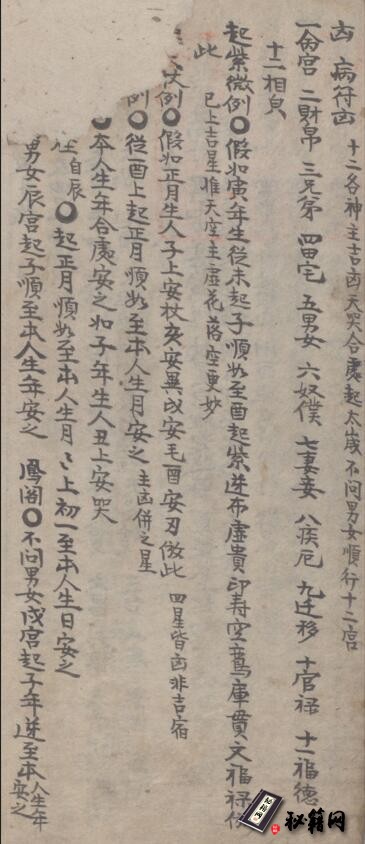 凶 病符凶 十二各神主吉凶天哭合處起太歲不问男女順行十二宫
一命宫 二財帛 三兄弟 四田宅 五男女 六奴僕 七妻妾 八疾厄 九迁移 十官禄 十一福德
十二相皃
起紫微例〇假如寅年生從未起子順如至酉起紫逆布虚貴印寿空鸞庫貫文福禄仿
此 已上吉星惟天空主虚花落空更妙
杖例〇假如正月生人子上安杖亥安異戌安毛酉安刃倣此 四星皆凶非吉宿
例〇從酉上起正月順如至本人生月安之 主凶併之星
〇本人生年合處安之如子年生人丑上安哭
自辰〇起正月順如至本人生月〻上初一至本人生日安之
男女辰宫起子順至本人生年安之 鳳阁〇不问男女戌宫起子年逆至本人生年安之
秘籍网